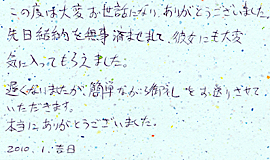 この度は大変お世話になり、ありがとうございました。
先日結納を無事済ませまして、彼女にも大変
気に入ってもらえました。
遅くなりましたが、簡単ながら御礼をお送りさせて
いただきます。
本当にありがとうございました。
2010.1.吉日